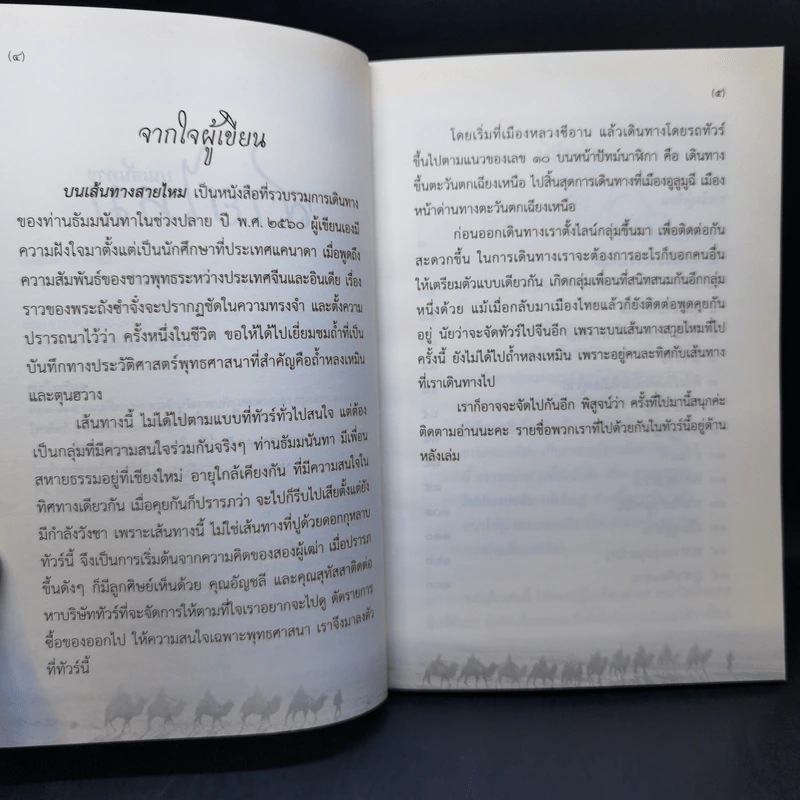 (๔)
จากใจผู้เขียน
บนเส้นทางสายไหม เป็นหนังสือที่รวบรวมการเดินทาง
ของท่านธัมมนันทาในช่วงปลาย ปี พ.ศ. ๒๕๖๐ ผู้เขียนเองมี
ความฝังใจมาตั้งแต่เป็นนักศึกษาที่ประเทศแคนาดา เมื่อพูดถึง
ความสัมพันธ์ของชาวพุทธระหว่างประเทศจีนและอินเดีย เรื่อง
ราวของพระถังซำจั๋งจะปรากฏชัดในความทรงจำ และตั้งความ
ปรารถนาไว้ว่า ครั้งหนึ่งในชีวิต ขอให้ได้ไปเยี่ยมชมถ้ำที่เป็น
บันทึกทางประวัติศาสตร์พุทธศาสนาที่สำคัญคือถ้ำหลงเหมิน
และตุนฮวาง
เส้นทางนี้ ไม่ได้ไปตามแบบที่ทัวร์ทั่วไปสนใจ แต่ต้อง
เป็นกลุ่มที่มีความสนใจร่วมกันจริงๆ ท่านธัมมนันทา มีเพื่อน
สหายธรรมอยู่ที่เชียงใหม่ อายุใกล้เคียงกัน ที่มีความสนใจใน
ทิศทางเดียวกัน เมื่อคุยกันก็ปรารภว่า จะไปก็รีบไปเสียตั้งแต่ยัง
มีกำลังวังชา เพราะเส้นทางนี้ ไม่ใช่เส้นทางที่ปูด้วยดอกกุหลาบ
ทัวร์นี้ จึงเป็นการเริ่มต้นจากความคิดของสองผู้เฒ่า เมื่อปรารภ
ขึ้นดังๆ ก็มีลูกศิษย์เห็นด้วย คุณอัญชลี และคุณสุทัสสาติดต่อ
หาบริษัททัวร์ที่จะจัดการให้ตามที่ใจเราอยากจะไปดู ตัดรายการ
ซื้อของออกไป ให้ความสนใจเฉพาะพุทธศาสนา เราจึงมาลงตัว
ที่ทัวร์นี้
(๕)
โดยเริ่มที่เมืองหลวงซีอาน แล้วเดินทางโดยรถทัวร์
ขึ้นไปตามแนวของเลข ๑๐ บนหน้าปัทม์นาฬิกา คือ เดินทาง
ขึ้นตะวันตกเฉียงเหนือ ไปสิ้นสุดการเดินทางที่เมืองอูลูมูฉี เมือง
หน้าด่านทางตะวันตกเฉียงเหนือ
ก่อนออกเดินทางเราตั้งไลน์กลุ่มขึ้นมา เพื่อติดต่อกัน
สะดวกขึ้น ในการเดินทางเราจะต้องการอะไรก็บอกคนอื่น
ให้เตรียมตัวแบบเดียวกัน เกิดกลุ่มเพื่อนที่สนิทสนมกันอีกกลุ่ม
หนึ่งด้วย แม้เมื่อกลับมาเมืองไทยแล้วก็ยังติดต่อพูดคุยกัน
อยู่ นัยว่าจะจัดทัวร์ไปจีนอีก เพราะบนเส้นทางสายไหมที่ไป
ครั้งนี้ ยังไม่ได้ไปถ้ำหลงเหมิน เพราะอยู่คนละทิศกับเส้นทาง
ที่เราเดินทางไป
เราก็อาจจะจัดไปกันอีก พิสูจน์ว่า ครั้งที่ไปมานี้สนุกค่ะ
ติดตามอ่านนะคะ รายชื่อพวกเราที่ไปด้วยกันในทัวร์นี้อยู่ด้าน
หลังเล่ม